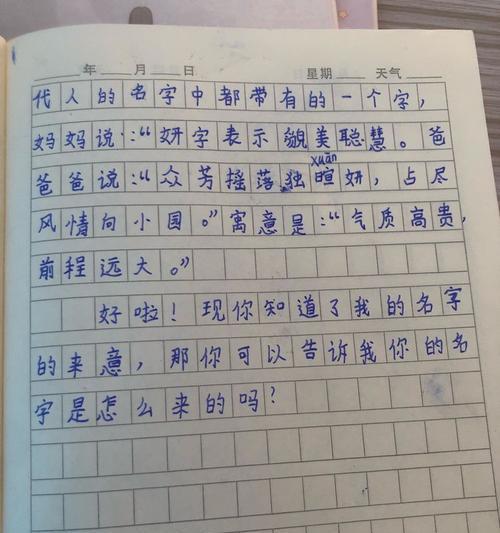 年 月 日 星期 天气
代人的名字中都带有的一个字，
妈妈说：“妍字表示貌美聪慧。爸
xuān
爸爸说：“众芳摇落独暄妍，占尽
风情向小园。”寓意是：“气质高贵，
前程远大。”
好啦！现你知道了我的名字
的来意，那你可以告诉我你的名
字是怎么来的吗？